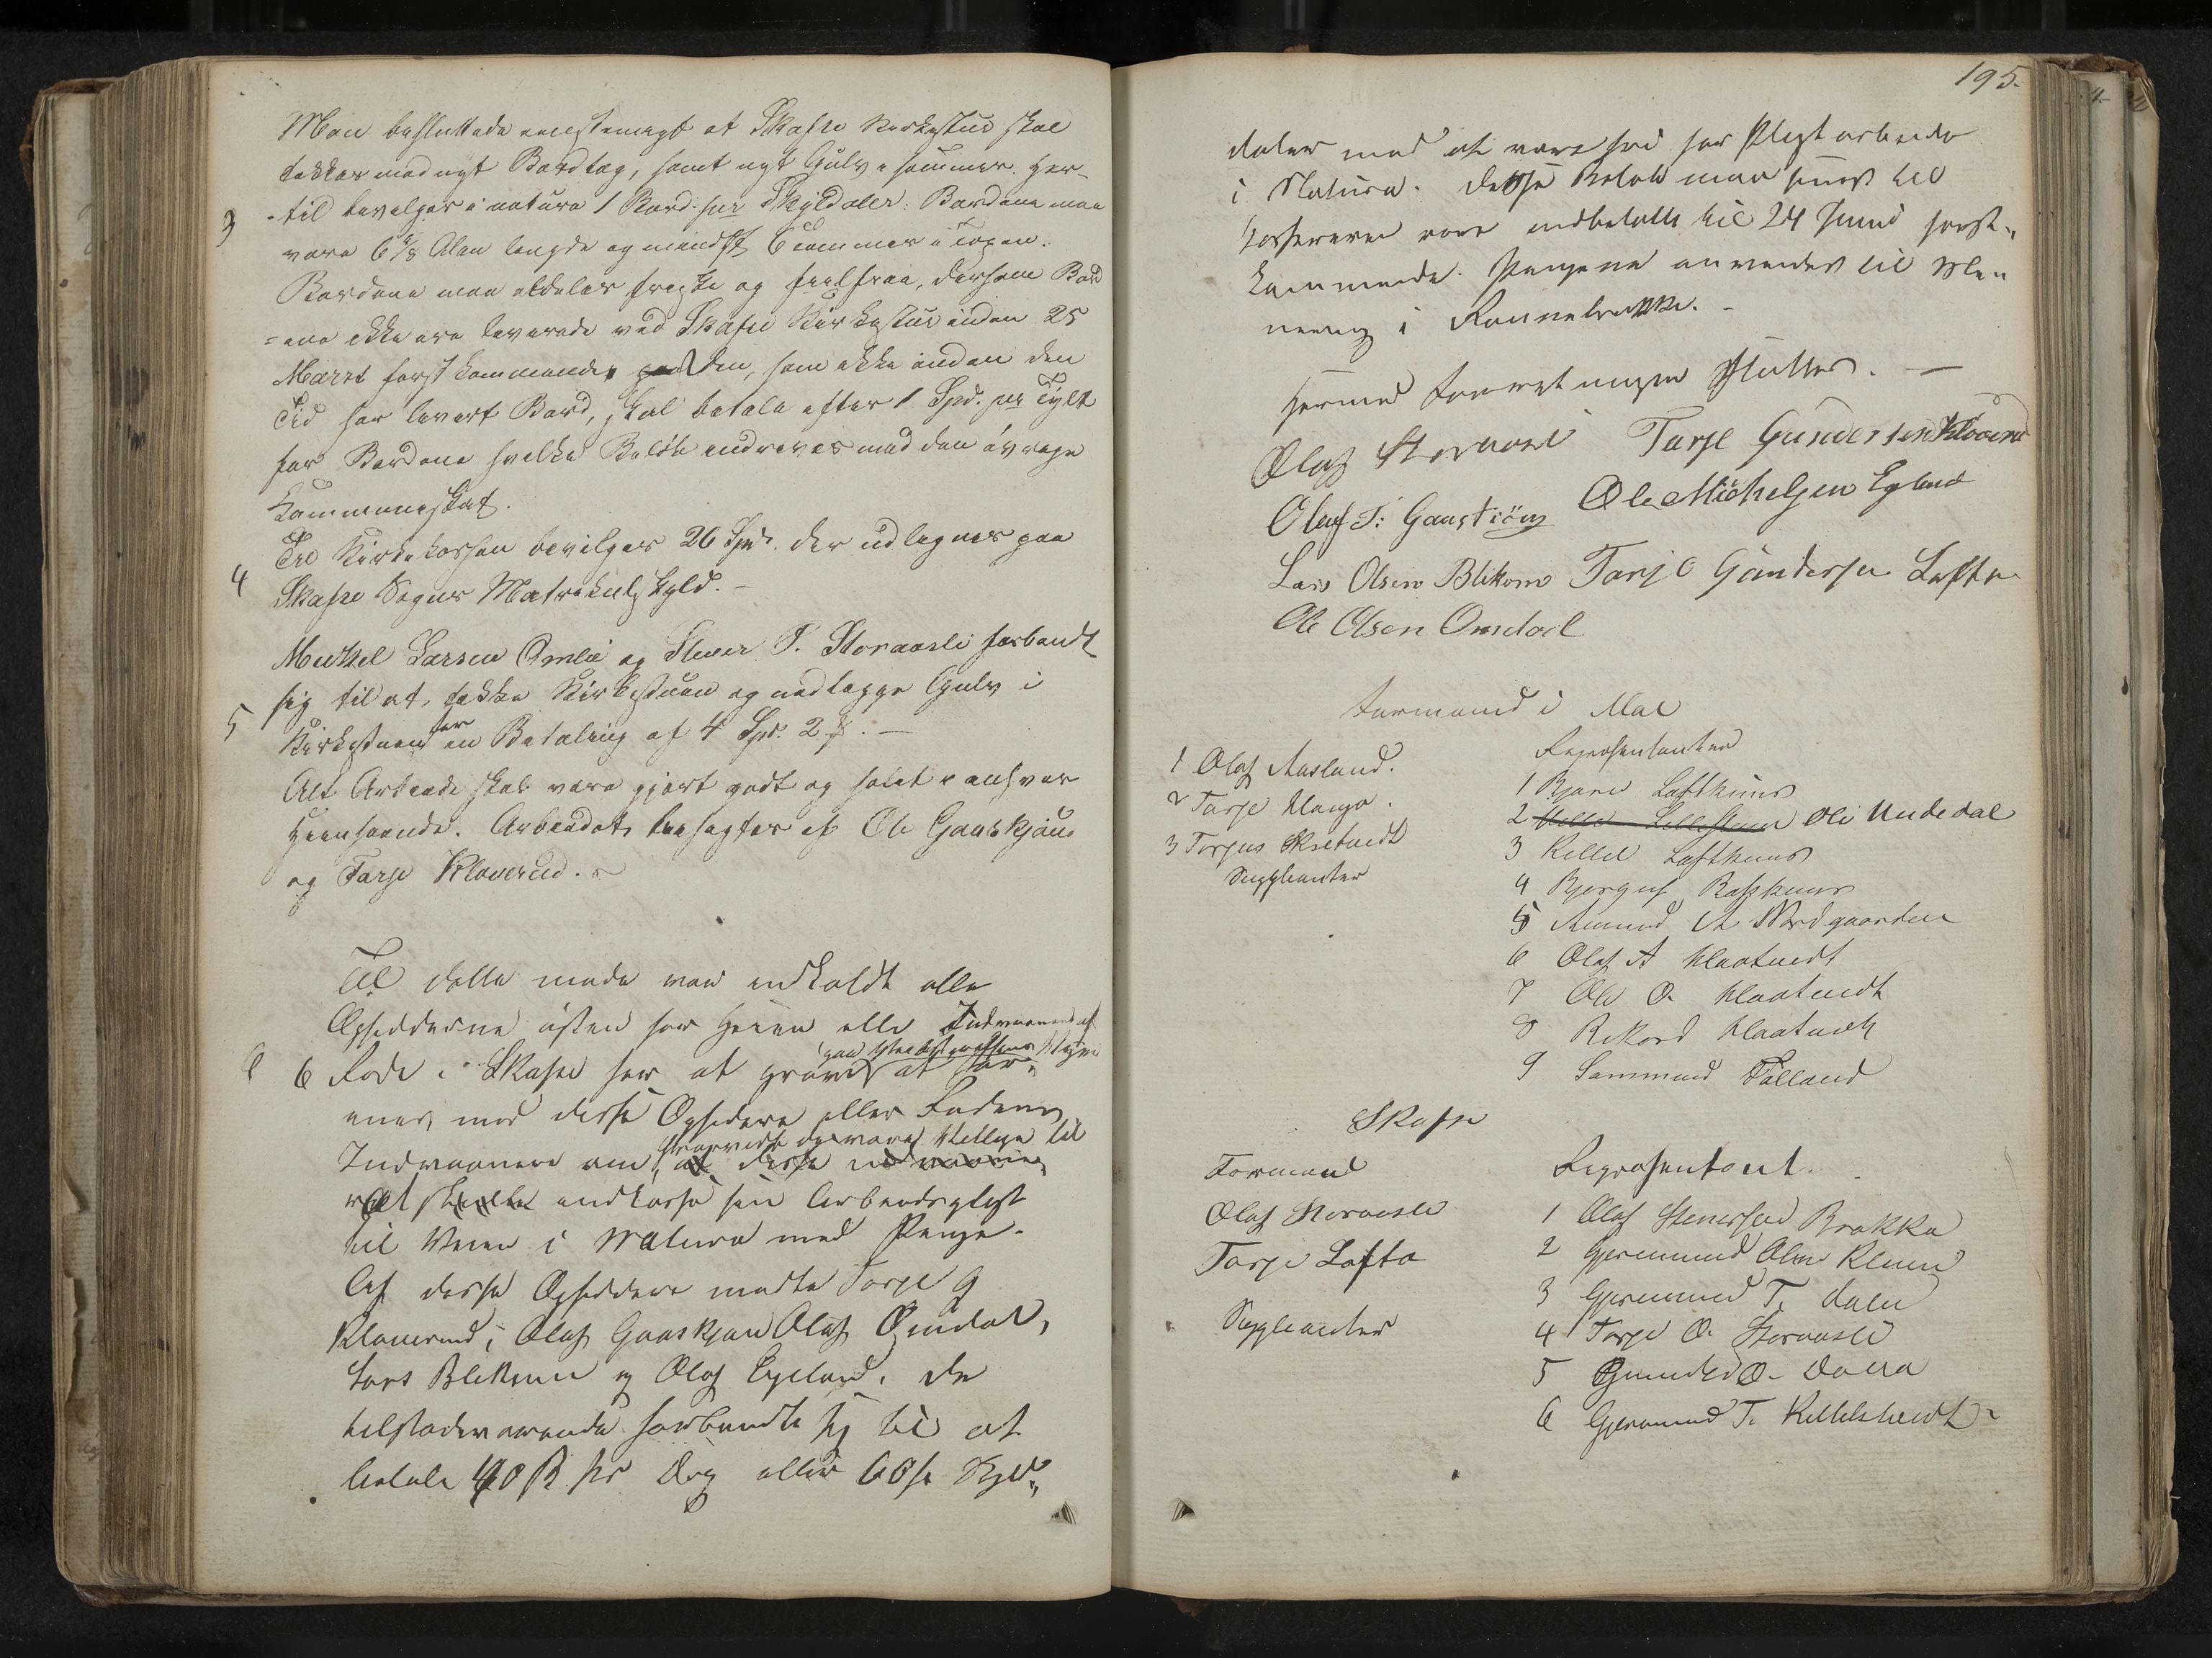 Man besluttede eenstemmigt at Skafse Kirkestue skal
tækkes med nyt Bordtag, samt nyt Gulv i sommer. Her-
3 -til bevilges in natura 1 Bord. per Skylddaler. Bordene maa
være 6 3/8 Alen længde og mindst 6 tommer i Topen.
Bordene maa aldeles friske og feilfrie, dersom Bord
=ene ikke ere leverede ved Skafse Kirkestue inden 25
Marts førstkommende, Den, som ikke inden den
Tid har levert Bord, skal betale efter 1 Spd. per Tylt
for Bordene hvilke Beløb inddrives med den øvrige
Kommuneskat.
Til Kirkekassen bevilges 26 Spd. der udlignes paa
4 Skafse Sogns Matrikulskyld. -
Mikkel Larsen Omlie og Stener T. Storaasli forbandt
sig til at tække Kirkestuen og nedlægge Gulv i
5 Kirkestuen for en Betaling af 4 Spd. 2 . -
Alt Arbeide skal være gjort godt og solid i enhver
Henseende. Arbeidet besigtes af Ole Gaaskjøn
og Tarje Kloverud.
Til dette møde var indkaldt alle
Opsidderne østen for Heien eller Indvaanerne af
6 6 Rode i Skafse for at prøves at for-
enes med disse Opsidere eller Rodens
Indvaanere om, at disse
skulde indkasse sin Arbeidspligt
til Veien i Natura med Penge.
Af disse Opsiddere mødte Tarje G
Kloverud, Olaf Gaaskjøn Olaf Omdal,
Lars Blekum og Olaf Egeland. De
tilstedeværende forbandt sig til at
betale 40 ß pr Dag eller 60 ß Skyld„
195.
daler mod at være fri for Pligtarbeide
i Natura. Disse Beløb maa sendes til
Kassereren være indbetalte til 24 Juni først„
kommende. Pengene anvendes til
i Rannebrække. -
Hermed Forretningen sluttes. -
Olaf Storaasli Tarje Gundersen Kloverud
Oluf T: Gaaskjön Ole Michelsen Egland
Lars Olsen Blikom Tarje Gundersen Lofte
Ole Olsen Omdal
Formænd i Moe
1 Olaf Aasland.
2 Tarje Haugo.
3 Torgus Skretvedt
Suppleanter
Repræsentanter
1 Bjørn Lofthuus
2 Ole Undedal
3 Kittel Lofthuus
4 Bjørguf Rasthuus
5 Amund A Nordgaarden
6 Olaf A Klaatvedt
7 Ole O. Klaatvedt
8 Rikard Klaatvedt
9 Sammund Tølland
Skafse
Formænd
Olaf Storaasli
Tarje Lofto
Suppleanter
Representant.
1 Olaf Stenersen Brække
2 Gjermund Olsen Klemi
3 Gjermund T. Dalen
4 Tarje O. Storaasli
5 Gunder O. Dalen
6 Gjermund T. Kittelstvedt